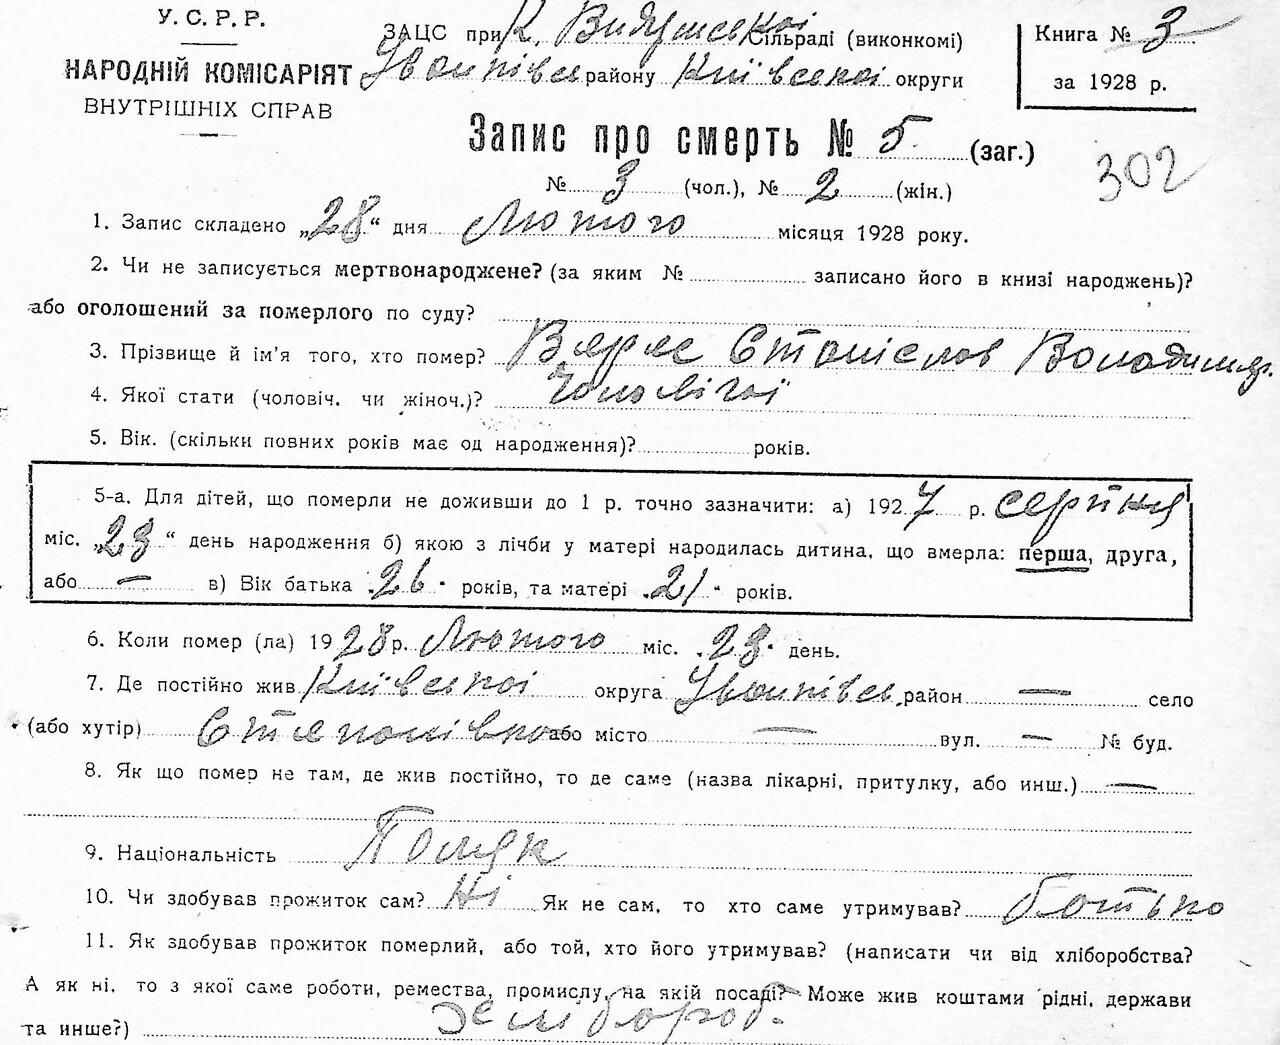 У. С. Р. Р.
НАРОДНІЙ КОМІСАРІЯТ
ВНУТРІШНІХ СПРАВ
ЗАЦС при К. сільраді (виконкомі)
району Київської округи
Книга № 3
за 1928 р.
Запис про смерть № 5 (заг.)
302
№ 3 (чол.), № 2 (жін.)
1. Запис складено „28“ дня Лютого місяця 1928 року.
2. Чи не записується мертвонароджене? (за яким № записано його в книзі народжень)?
або оголошений за померлого по суду?
3. Прізвище й ім'я того, хто помер? Станіслав Володимир.
4. Якої стати (чоловіч. чи жіноч.)? Чоловічої
5. Вік. (скільки повних років має од народження)? років.
5-а. Для дітей, що померли не доживши до 1 р. точно зазначити: а) 1927 р. серпня
міс. „23“ день народження б) якою з лічби у матері народилась дитина, що вмерла: перша, друга,
або — в) Вік батька 26 років, та матері 21 років.
6. Коли помер (ла) 1928 р. Лютого міс. 23 день.
7. Де постійно жив Київської округа район — село
(або хутір) Степанівка або місто — вул. — № буд.
8. Як що помер не там, де жив постійно, то де саме (назва лікарні, притулку, або инш.) —
9. Національність Поляк
10. Чи здобував прожиток сам? Ні Як не сам, то хто саме утримував? батько
11. Як здобував прожиток померлий, або той, хто його утримував? (написати чи від хліборобства?
А як ні, то з якої саме роботи, ремества, промислу, на якій посаді? Може жив коштами рідні, держави
та инше?) Хлібороб.